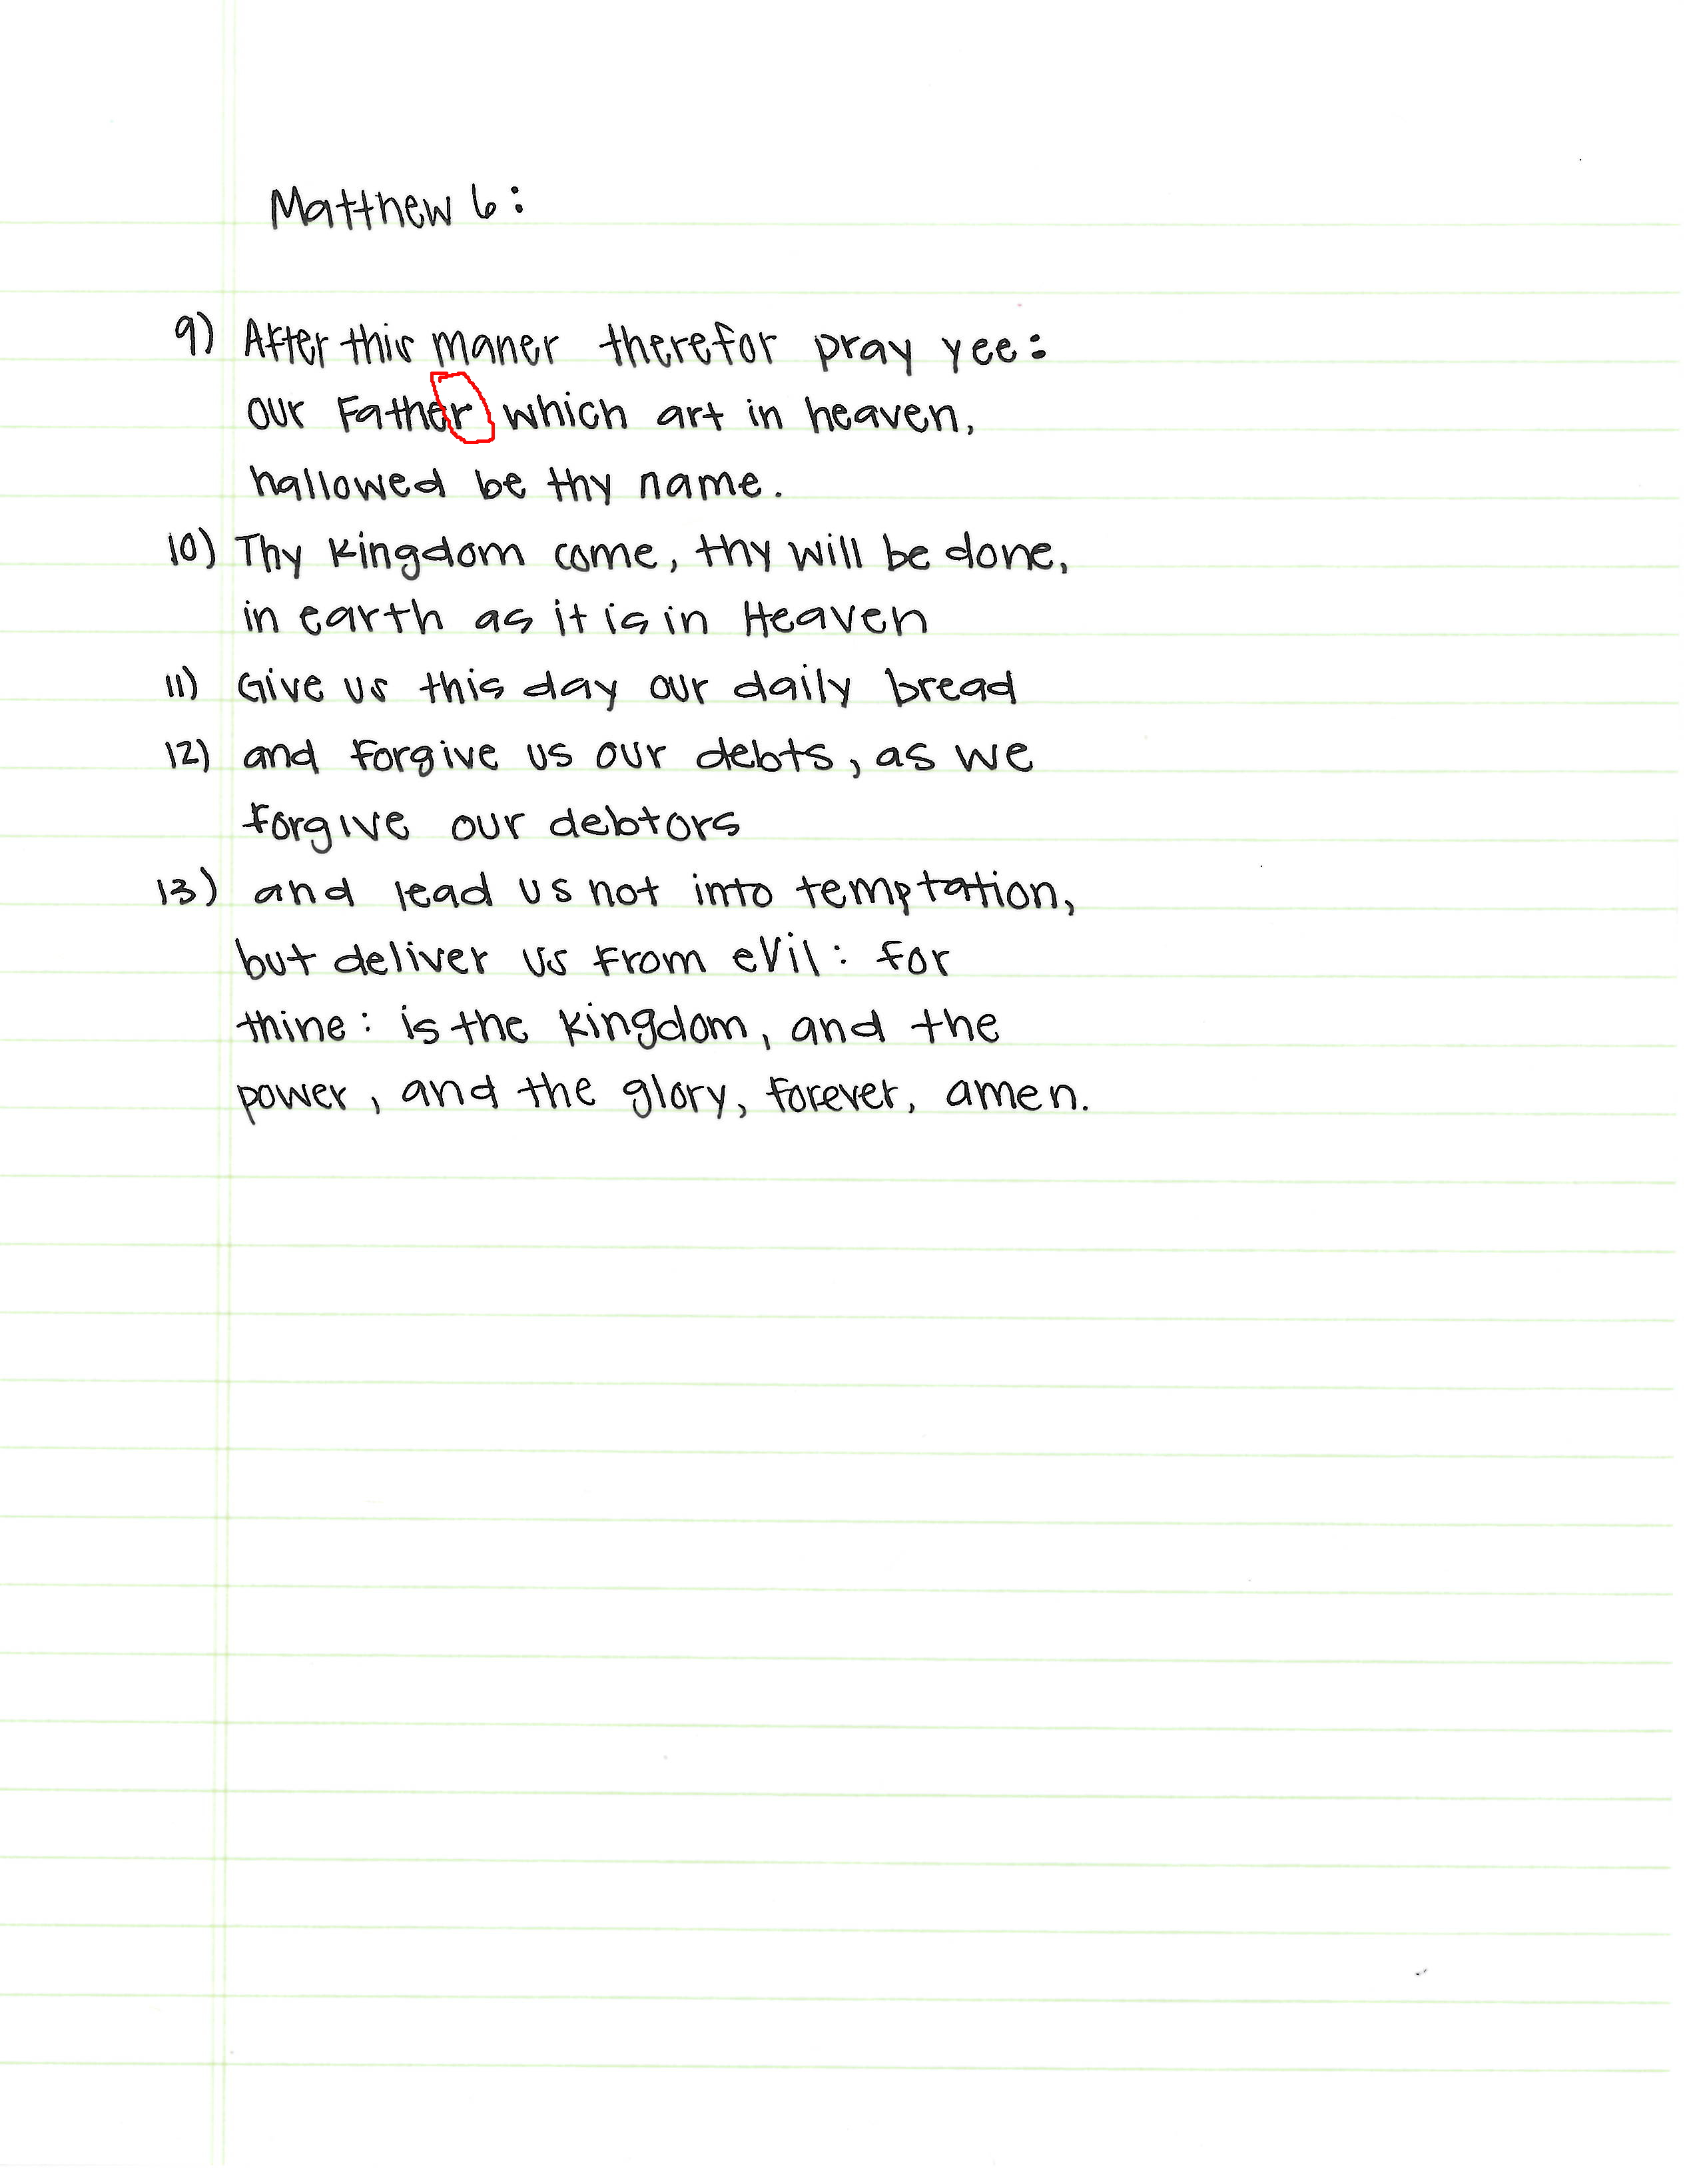 Matthew 6:
9) After this maner therefor pray yee:
our Father which art in heaven,
hallowed be thy name.
10) Thy Kingdom come, thy will be done,
in earth as it is in Heaven
11) Give us this day our daily bread
12) and forgive us our debts, as we
forgive our debtors
13) and lead us not into temptation,
but deliver us from evil: for
thine: is the kingdom, and the
power, and the glory, forever, amen.